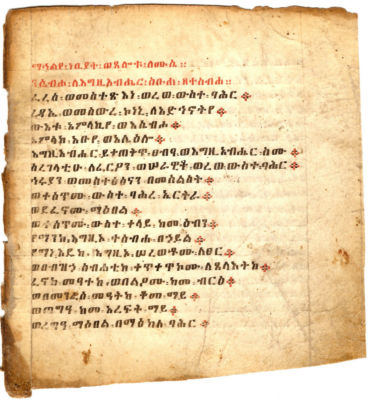 ማኅልየ፡ነቢያት፡ወጸሎቱ፡ለሙሴ።
ንሴብሖ፡ለእግዚአብሔር፡ስቡሐ፡ዘተሰብሐ።
ፈረሰ፡ወመስተጽእነ፡ወረወ፡ውስተ፡ባሕር
ረዳኢ፡ወመሰውረ፡ኮነኒ፡ለአድኅኖትየ
ውእቱ፡አምላኪየ፡ወእሴብሖ
አምላከ፡አቡየ፡ወኣሌዕሎ
እግዚአብሔር፡ይቀጠቅጥ፡ፀብአ፡ወእግዚአብሔር፡ስሙ
ሰረገላቲሁ፡ለፈርዖን፡ወሠራዊቶ፡ወረወ፡ውስተ፡ባሕር
ኅሩያነ፡ወመስተፅዕናነ፡በመሥልስት
ወተሰጥሙ፡ውስተ፡ባሕረ፡ኤርትራ
ወደፈኖሙ፡ማዕበል
ወተሰጥሙ፡ውስተ፡ቀላይ፡ከመ፡ዕብን
የማንከ፡እግዚኦ፡ተሰብሐ፡በኃይል
የማነ፡እዴከ፡እግዚኦ፡ሠረወቶሙ፡ለፀር
ወበብዝኀ፡ስብሐቲከ፡ቀጥቀጥኮሙ፡ለጸላእትከ
ፈኖከ፡መዓተከ፡ወበልዖሙ፡ከመ፡ብርዕ
ወበመንፈሰ፡መዓትከ፡ቆመ፡ማይ
ወጠግዐ፡ከመ፡አረፍት፡ማይ
ወረግዐ፡ማዕበል፡በማዕከለ፡ባሕር